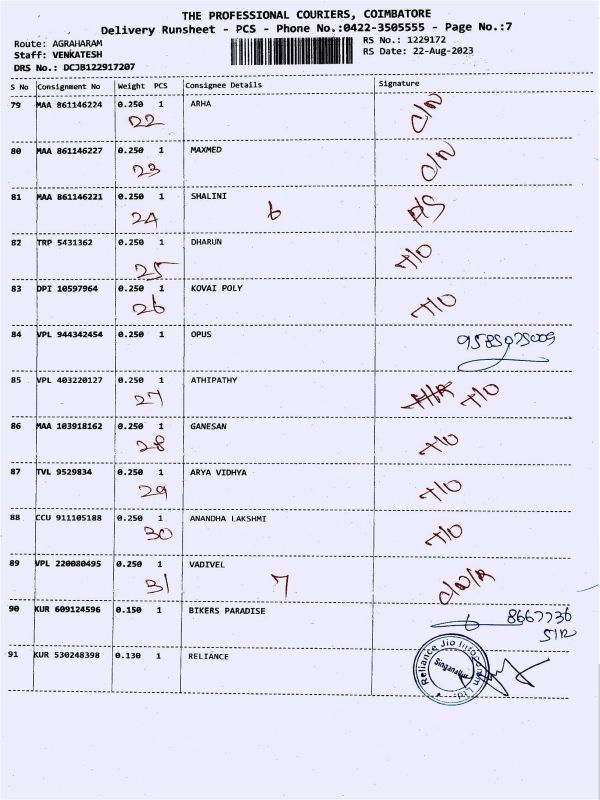 THE PROFESSIONAL COURIERS, COIMBATORE
Delivery Runsheet - PCS - Phone No.:0422-3505555 - Page No.:7
Route: AGRAHARAM
RS No.: 1229172
Staff: VENKATESH
RS Date: 22-Aug-2023
DRS No.: DCJB122917207
S No Consignment No Weight PCS Consignee Details Signature
79 MAA 861146224 0.250 1 ARHA C/N
22
80 MAA 861146227 0.250 1 MAXMED C/N
23
81 MAA 861146221 0.250 1 SHALINI P/S
24 6
82 TRP 5431362 0.250 1 DHARUN T/O
25
83 DPI 10597964 0.250 1 KOVAI POLY T/O
26
84 VPL 944342454 0.250 1 OPUS
85 VPL 403220127 0.250 1 ATHIPATHY T/O
27
86 MAA 103918162 0.250 1 GANESAN T/O
28
87 TVL 9529834 0.250 1 ARYA VIDHYA T/O
29
88 CCU 911105188 0.250 1 ANANDHA LAKSHMI T/O
30
89 VPL 220080495 0.250 1 VADIVEL C/N/R
31 7
90 KUR 609124596 0.150 1 BIKERS PARADISE
91 KUR 530248398 0.130 1 RELIANCE
Reliance Jio Infocomm Ltd.
Singanallur